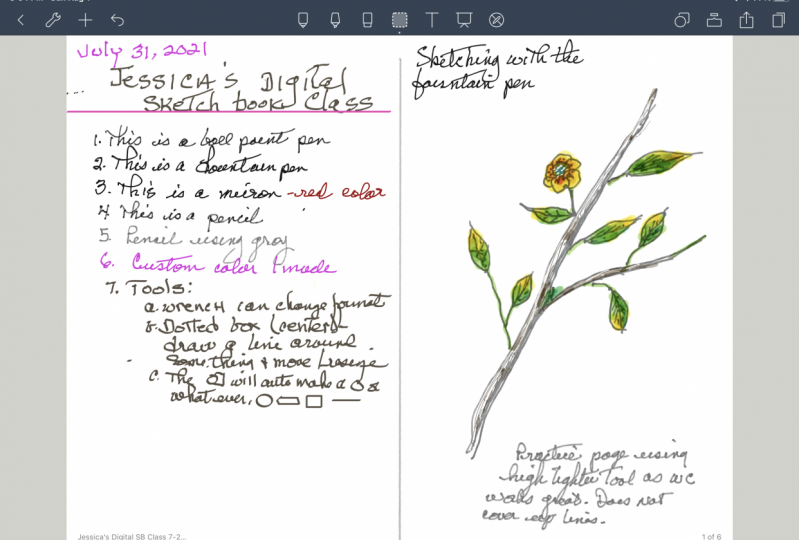 July 31, 2021
JESSICA'S DIGITAL
SKETCH book Class
1. This is a ball point pen
2. This is a fountain pen
3. This is a micron -red color
4 This is a pencil
5. Pencil using gray
6. Custom color I made
7. Tools:
a. wrench can change format
b. Dotted box (center)-
draw a line around
Something & move &
C. The will auto make a
whatever.
Sketching with the
fountain pen
Practice page using
highlighter Tool as WC
works great. Does not
cover up lines.
Jessica's Digital SB Class 7-2...
1 of 6